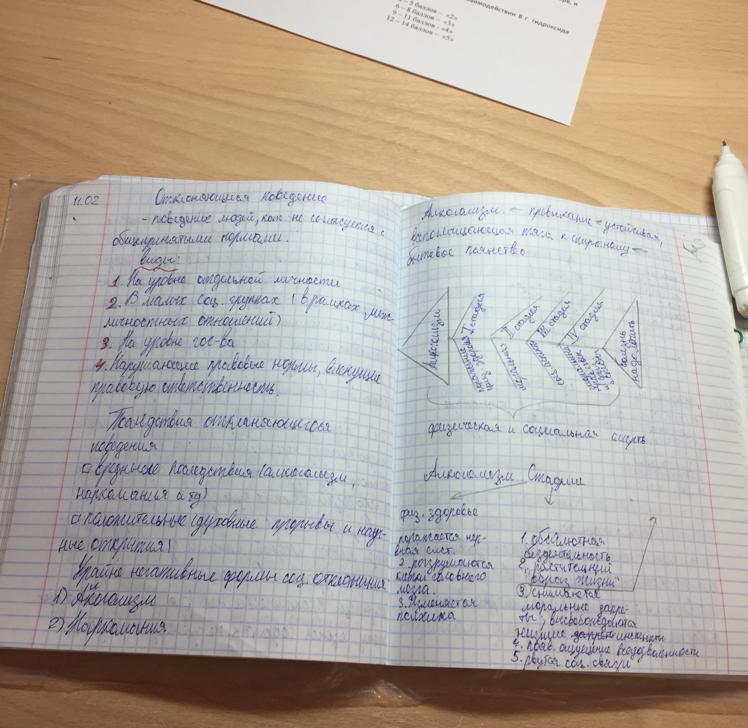 взаимодействии 8 г. гидроксида
5 баллов – «2»
6 – 8 баллов – «3»
9 – 11 баллов – «4»
12 – 14 баллов – «5»
11.02
Отклоняющееся поведение
– поведение людей, кот. не согласуется с
общепринятыми нормами.
Виды:
1. На уровне отдельной личности
2. В малых соц. группах (в рамках меж
личностных отношений)
3. На уровне гос-ва
4. Нарушающие правовые нормы, влекущие
правовую ответственность.
Последствия отклоняющегося
поведения
вредные последствия (алкоголизм,
наркоманья а тд)
положительные (духовные прорывы и науч-
ные открытия)
Крайне негативные формы соц. отклонения
1) Алкоголизм
2) Наркомания
Алкоголизм – привыкание – устойчивая,
тяга к спиртному –
бытовое пьянство
Алкоголизм
I стадия
II стадия
III стадия
IV стадия
болезнь
надо лечить
физическая и социальная смерть
Алкоголизм Стадии
физ. здоровье
нер-
вная сист.
2. разрушаются
клетки головного
мозга.
3. Изменяется
психика
1. абсолютная
бездеятельность
2. растительный
"образ жизни"
3. снимаются
моральные запре-
ты, высвобождаются
низшие инстинкты
4. ощущение вседозволенности
5. рвутся соц. связи